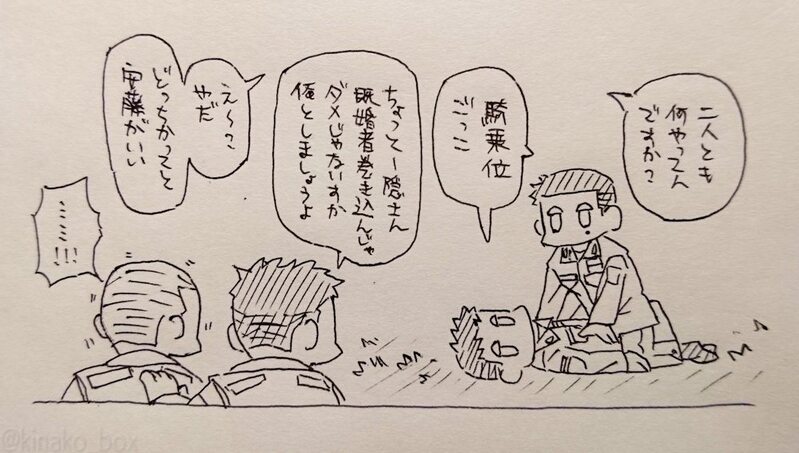 二人とも
何やってん
ですか?
騎乗位
ごっこ
ちょっとー隠さん
既婚者巻き込んじゃ
ダメじゃないすか
俺としましょうよ
え〜?
やだ
どっちかってと
安藤がいい
ミミ!!!
@kinako_box